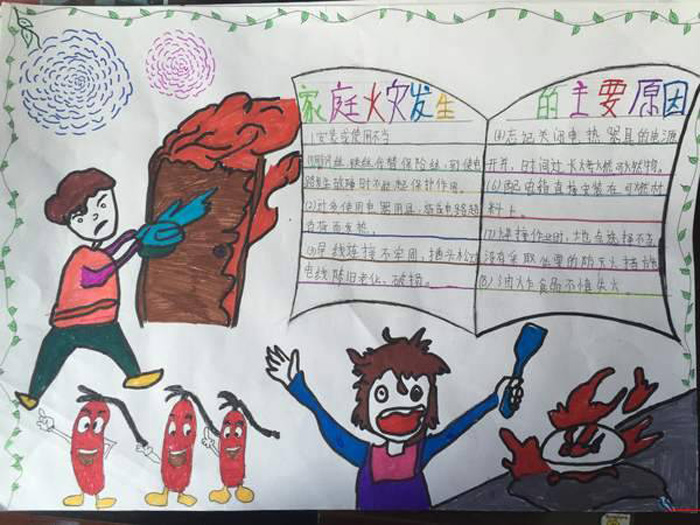 家庭火灾发生的主要原因
1.安装或使用不当
(1)用铜丝、铁丝代替保险丝,可使电
路发生故障时不能起保护作用。
(2)过多使用电器用具,
负荷而发热。
(3)导线连接不牢固,插头松
电线陈旧老化、破损。
(4)忘记关闭电热器具的电源
开关,时间过长烤燃可燃物。
(6)配电箱直接安装在可燃材
料上。
(7)焊操作业时,地点选择不当
没有采取必要的防火措施
(8)油炸食品不慎失火。